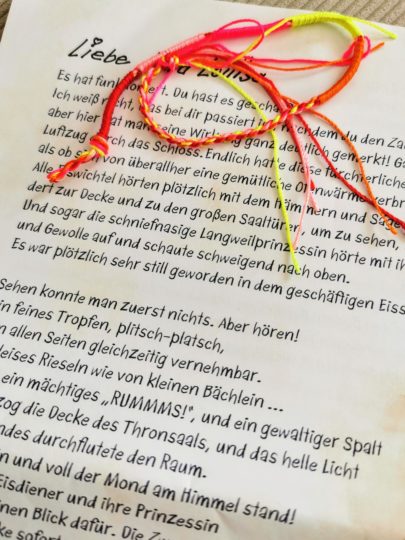 Liebe
Es hat funktioniert. Du hast es gescha
Ich weiß nicht, was bei dir passiert nachdem du den Zau
aber hier hat man eine Wirkung ganz deutlich gemerkt! G
Luftzug durch das Schloss. Endlich hatte diese fürchterliche
als ob von überallher eine gemütliche Ofenwärme verbr
Alle wichtel hörten plötzlich mit dem Hämmern und Säge
dert zur Decke und zu den großen Saaltüren, um zu sehen,
Und sogar die schniefnasige Langweilprinzessin hörte mit ih
und Gewolle auf und schaute schweigend nach oben.
Es war plötzlich sehr still geworden in dem geschäftigen Eiss
Sehen konnte man zuerst nichts. Aber hören!
in feines Tropfen, plitsch-platsch,
n allen Seiten gleichzeitig vernehmbar.
leises Rieseln wie von kleinen Bächlein ...
ein mächtiges „RUMMMS!", und ein gewaltiger Spalt
zog die Decke des Thronsaals, und das helle Licht
ndes durchflutete den Raum.
n und voll der Mond am Himmel stand!
Eisdiener und ihre Prinzessin
inen Blick dafür. Die Zw
ke sofort